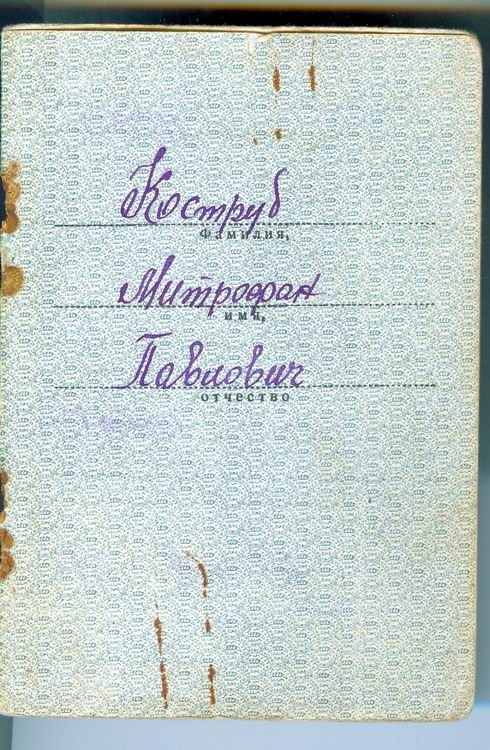 Коструб
Фамилия,
Митрофан
имя,
Павлович
отчество